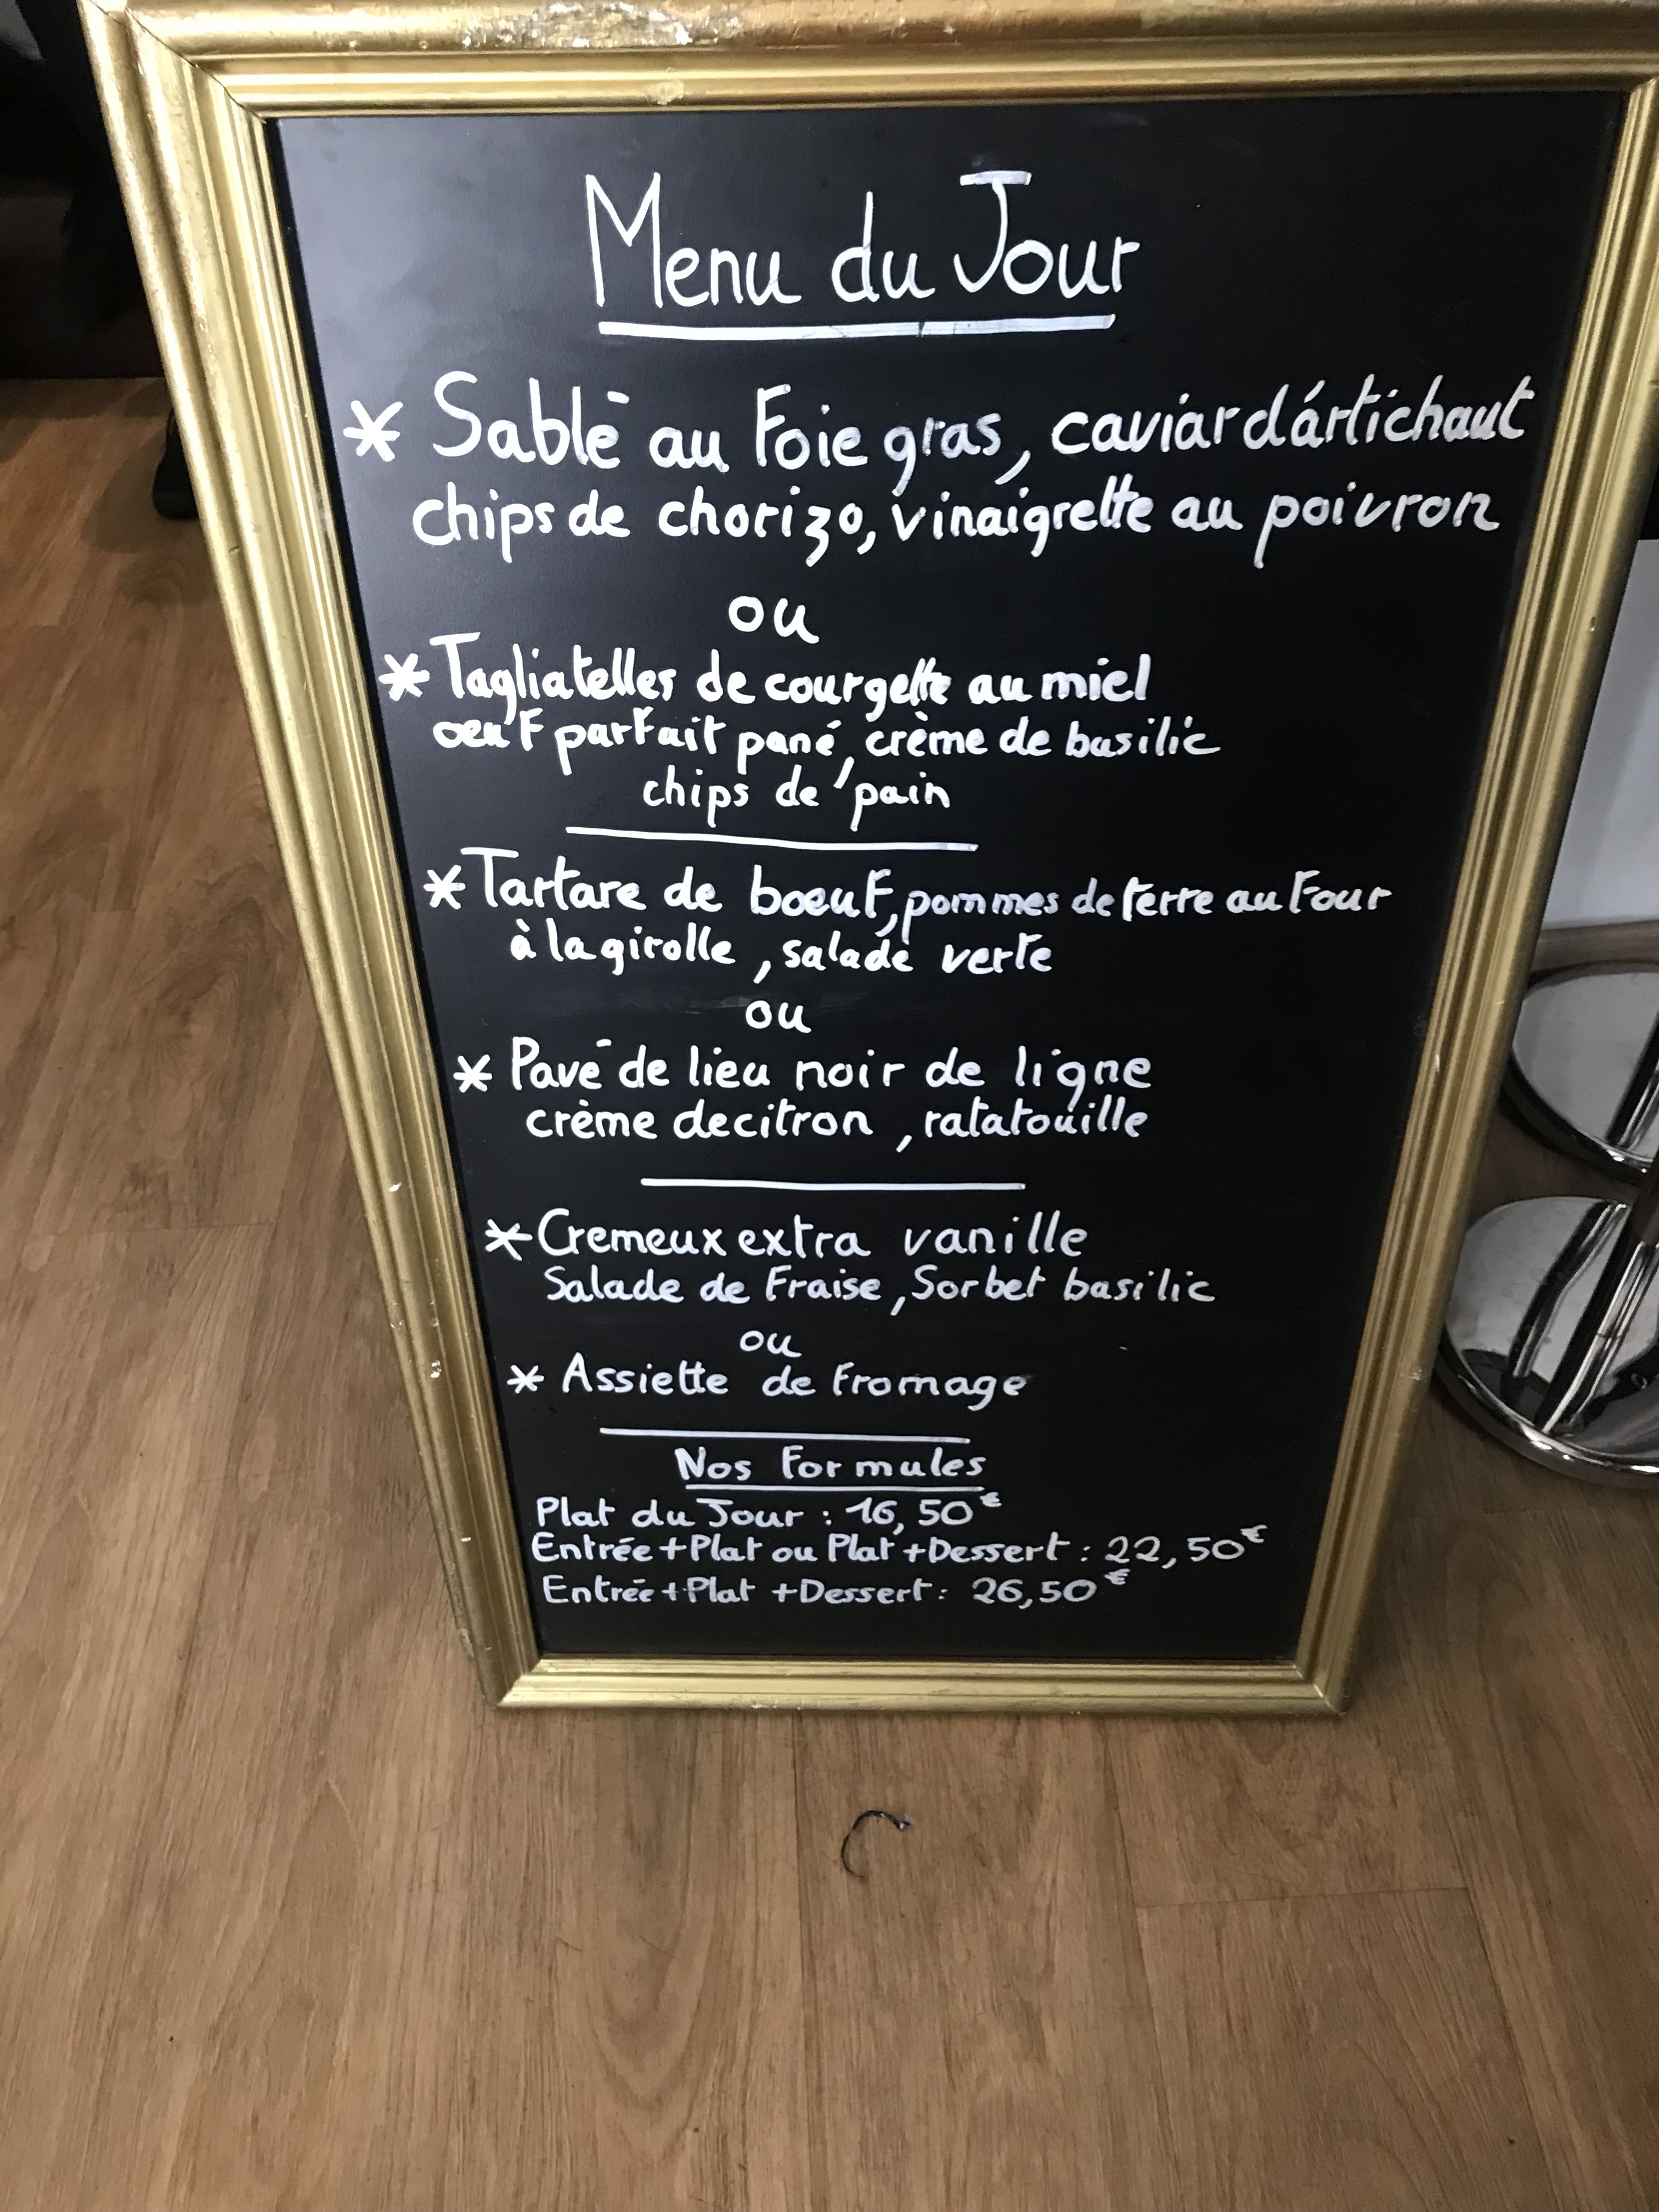 Menu du Jour
* Sablé au Foie gras, caviar d'artichaut
chips de chorizo, vinaigrette au poivron
ou
* Tagliatelles de courgette au miel
oeuf parfait pané, crème de basilic
chips de pain
* Tartare de boeuf, pommes de terre au Four
à la girolle, salade verte
ou
* Pavé de lieu noir de ligne
crème de citron, ratatouille
* Cremeux extra vanille
Salade de Fraise, Sorbet basilic
ou
* Assiette de Fromage
Nos Formules
Plat du Jour : 16,50€
Entrée + Plat ou Plat + Dessert : 22,50€
Entrée + Plat + Dessert : 26,50€